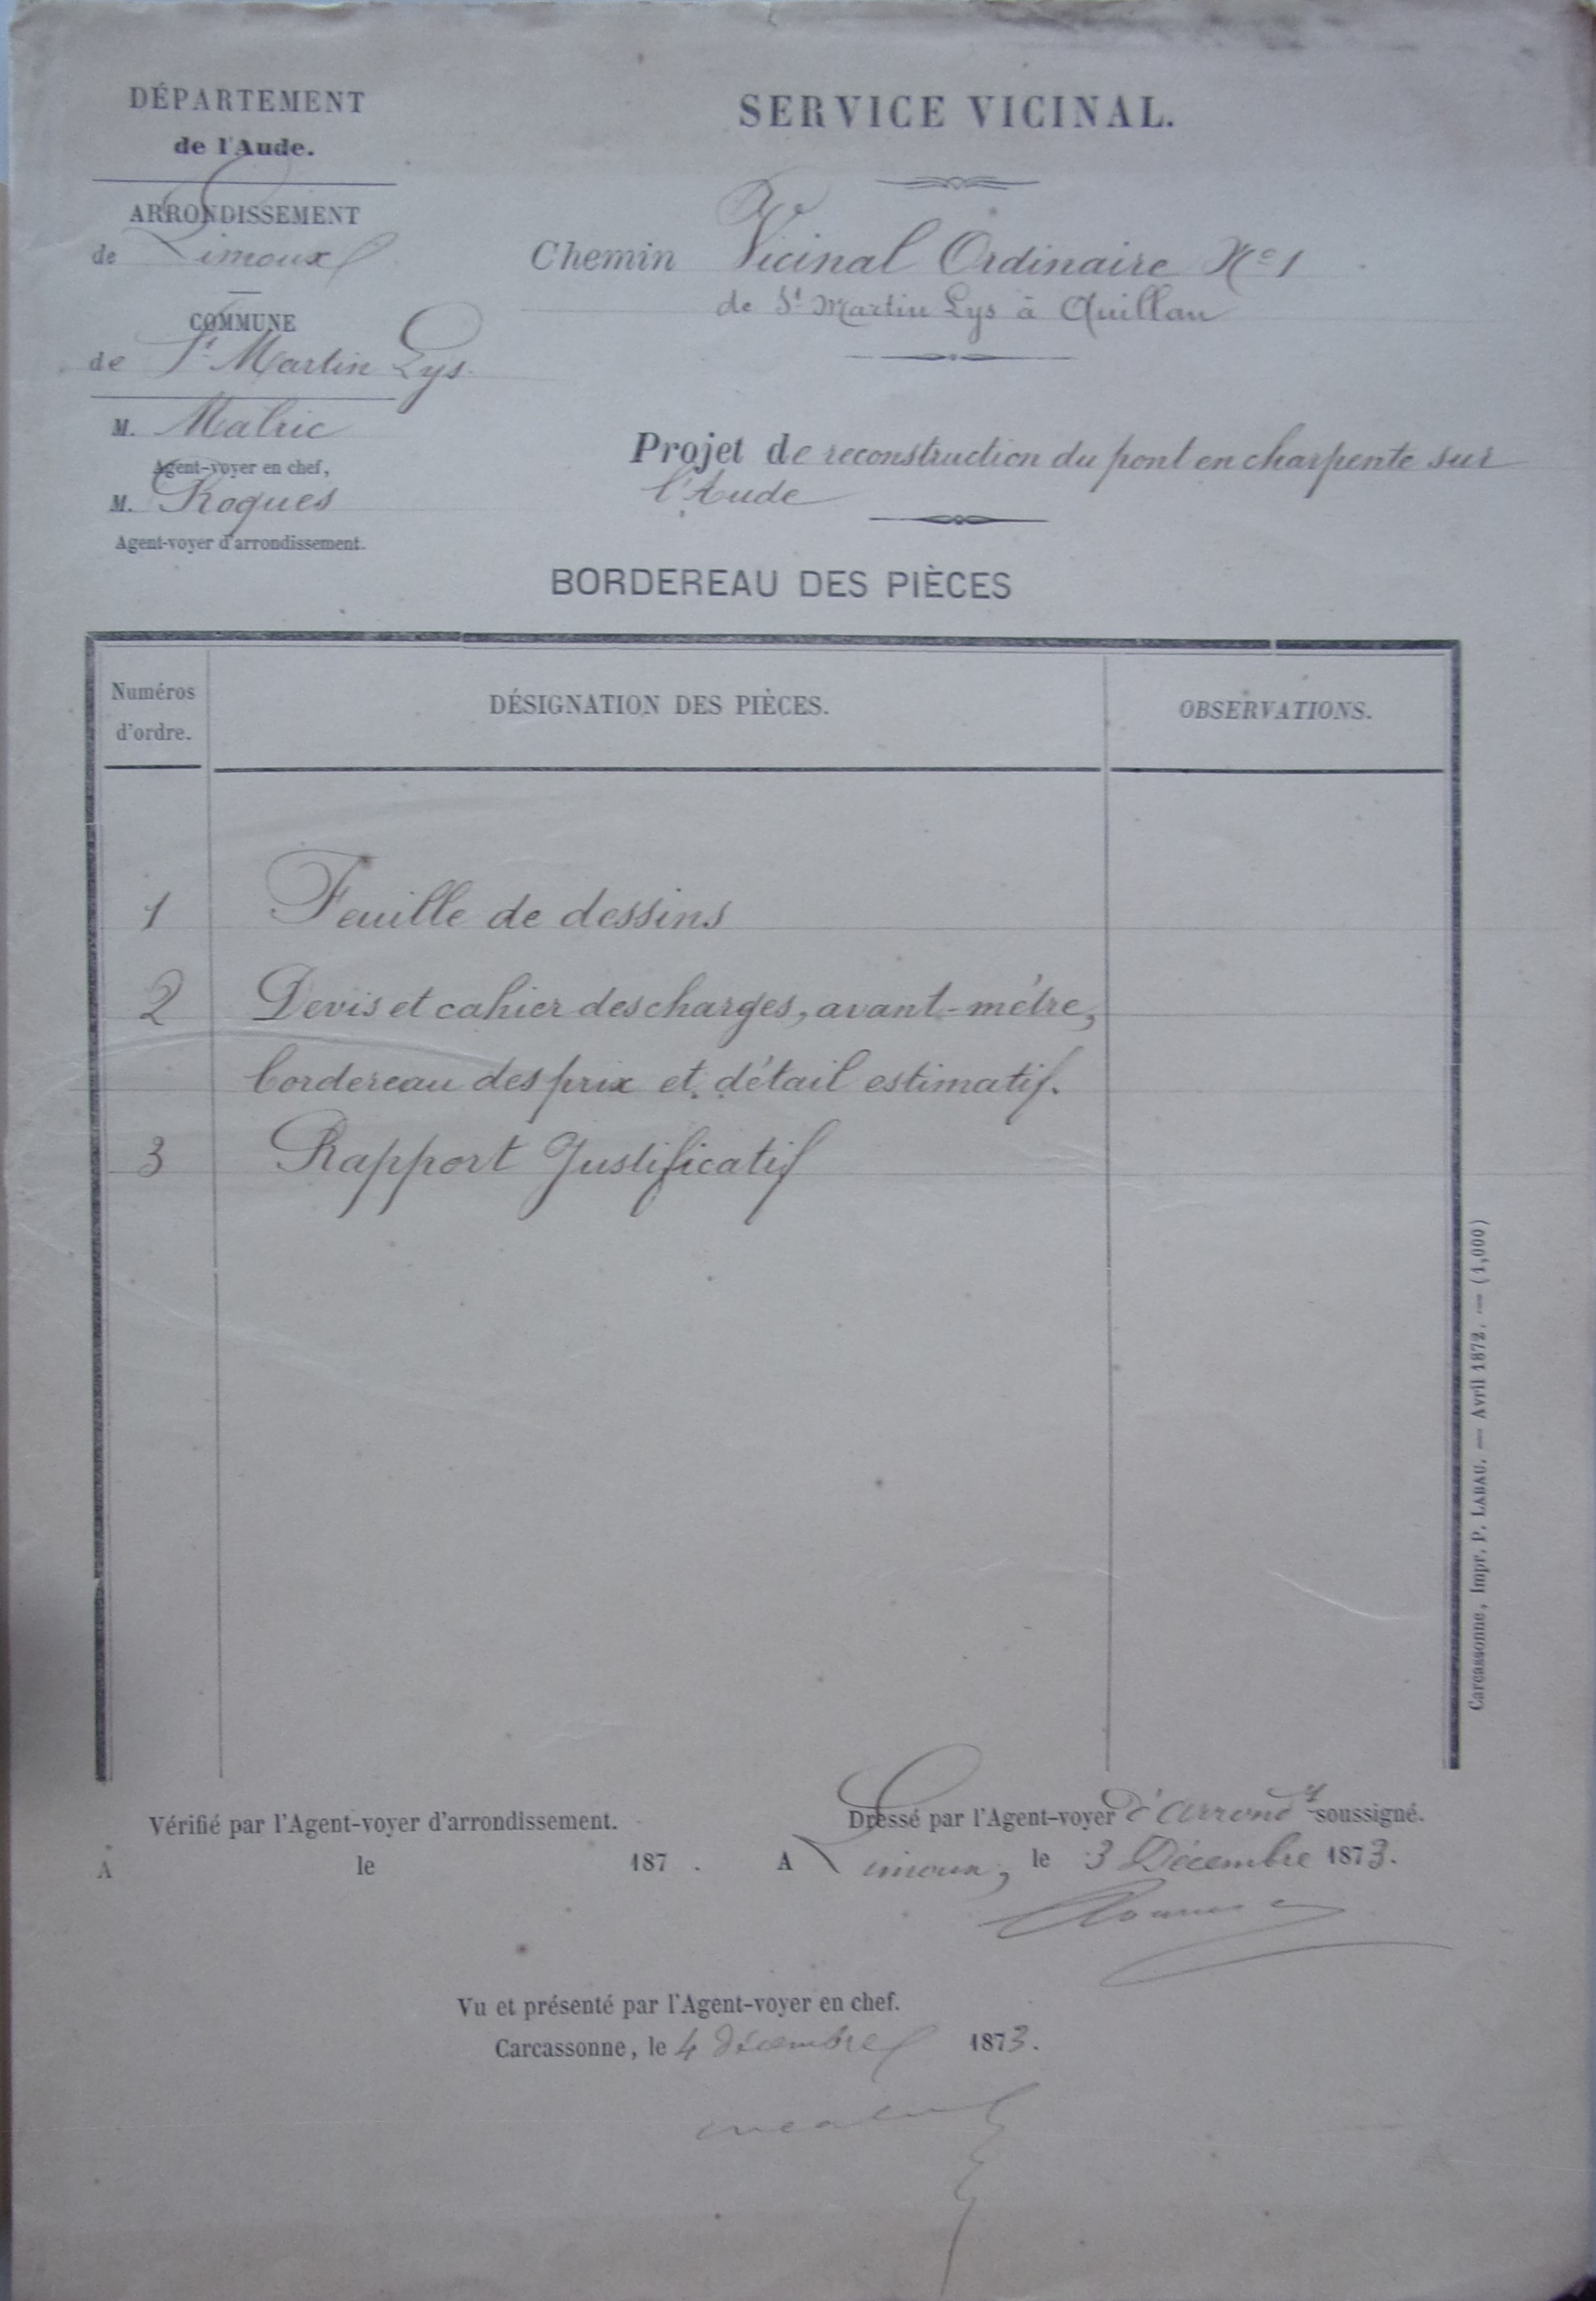 DÉPARTEMENT
de l'Aude.
ARRONDISSEMENT
de Limoux
COMMUNE
de St Martin Lys
M. Malric
Agent-voyer en chef,
M. Roques
Agent-voyer d'arrondissement.
SERVICE VICINAL.
Chemin Vicinal Ordinaire No 1
de St Martin Lys à Quillan
Projet de reconstruction du pont en charpente sur
l'Aude
BORDEREAU DES PIÈCES
Numéros
d'ordre.
DÉSIGNATION DES PIÈCES.
OBSERVATIONS.
1 Feuille de dessins
2 Devis et cahier des charges, avant-métre,
bordereau des prix et détail estimatif.
3 Rapport Justificatif
Carcassonne, Impr. P. LABAU. — Avril 1872. — (1,000)
Vérifié par l'Agent-voyer d'arrondissement.
A le 187 .
Dressé par l'Agent-voyer d'arrondt soussigné.
A Limoux, le 3 Décembre 1873.
Vu et présenté par l'Agent-voyer en chef.
Carcassonne, le 4 décembre 1873.